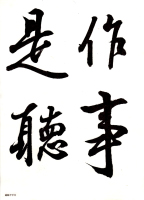 作事
是聽